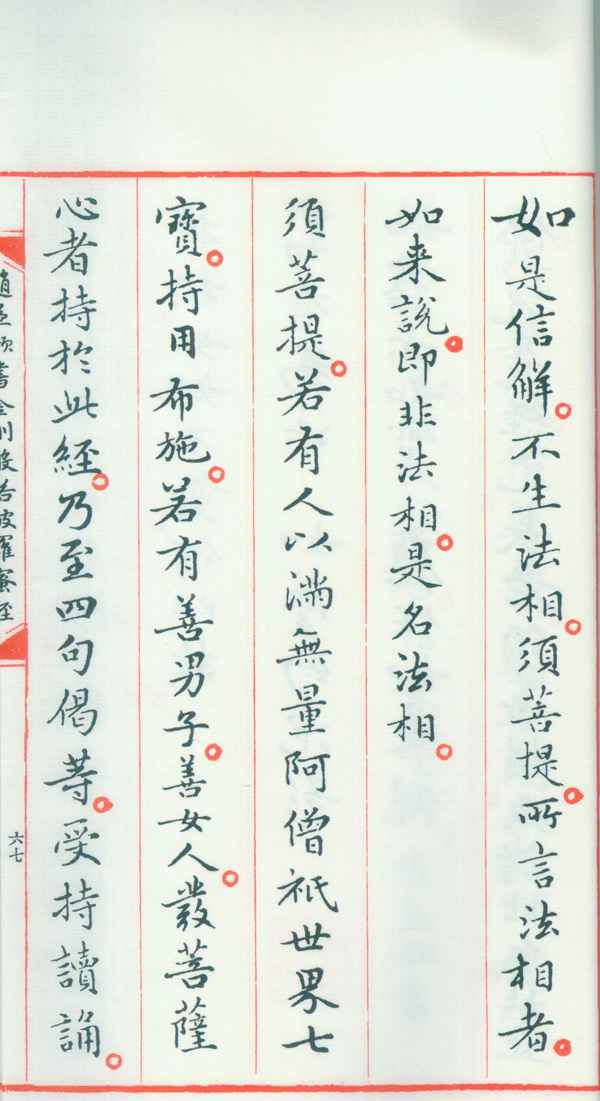 如是信解。不生法相。須菩提。所言法相者。
如来說。即非法相。是名法相。
須菩提。若有人以滿無量阿僧祇世界七
寶。持用布施。若有善男子。善女人。發菩薩
心者持於此經。乃至四句偈等。受持讀誦。
趙孟頫書金剛般若波羅蜜經
六七